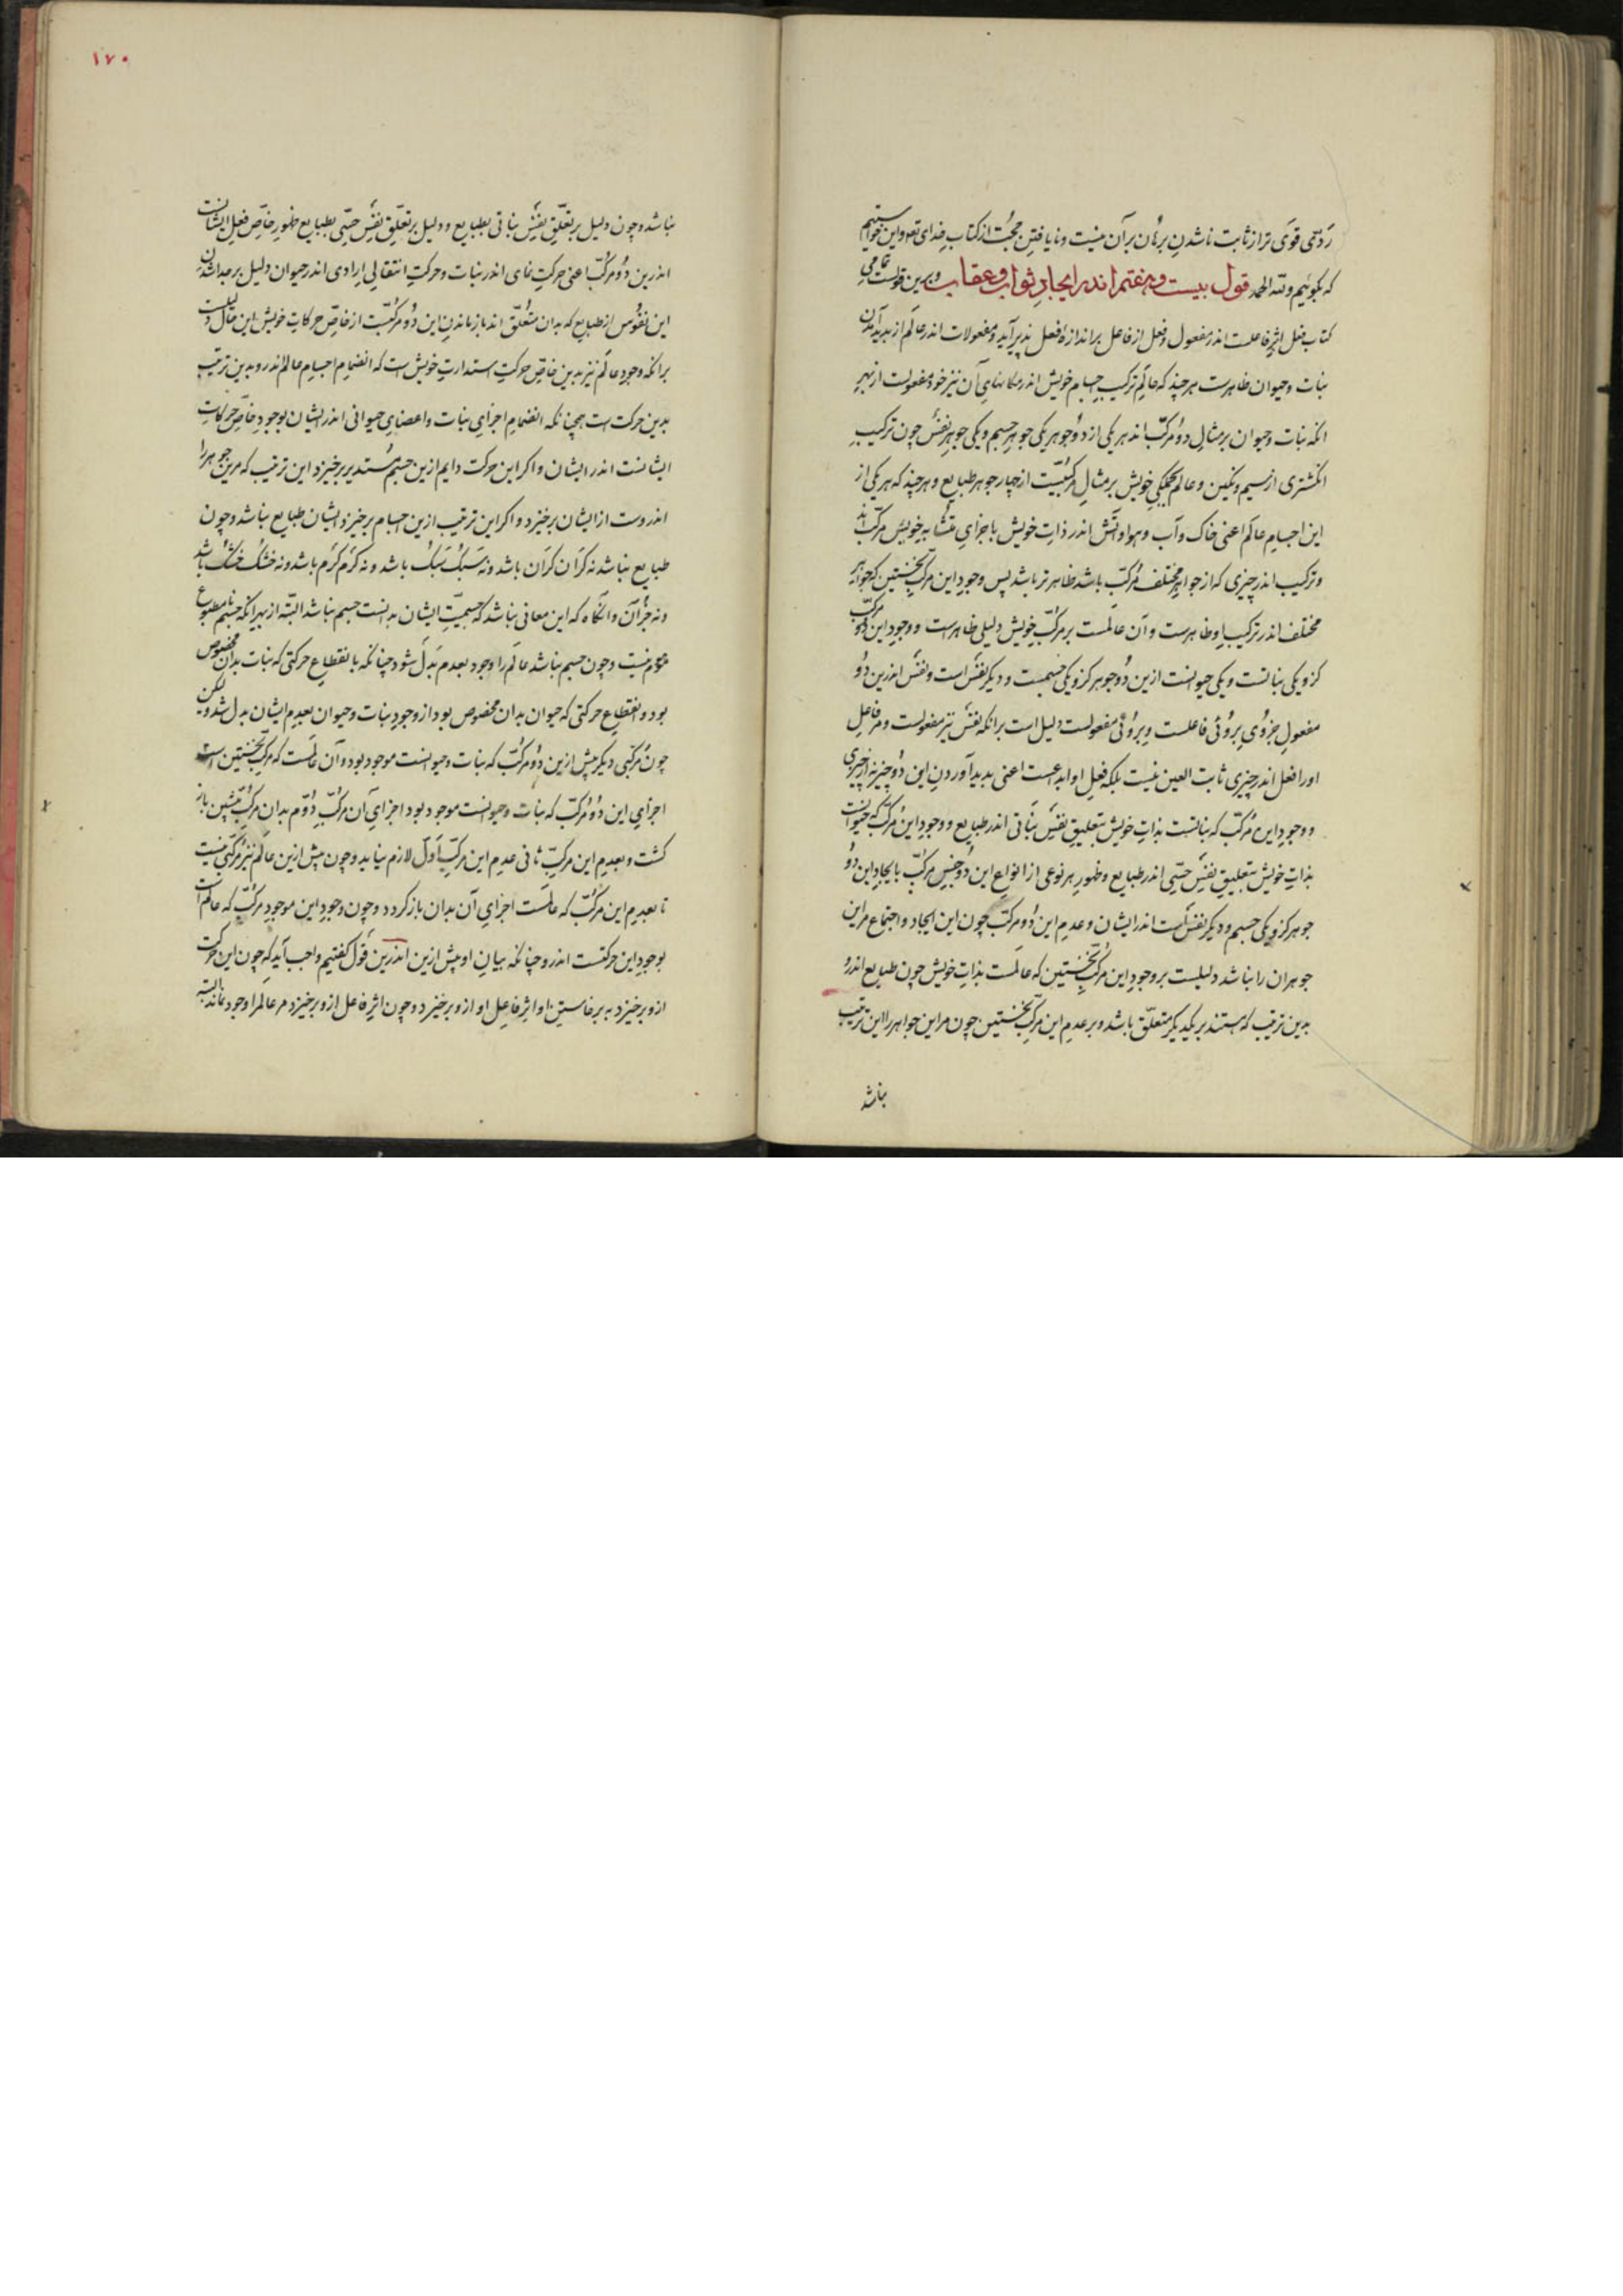 ردّی قوی تر از ثابت ناشدن برهان بر آن نیست و نایافتن حجّت از کتاب خدای تعالی و این خواستیم
که بگوئیم و لله الحمد قول بیست و هفتم اندر ایجاد ثواب و عقاب و برین قولست تمامی
کتاب فعل اثر فاعلست اندر مفعول و فعل از فاعل بر اندازه فعل پذیر آید و مفعولات اندر عالم از پدید آمدن
نبات و حیوان ظاهرست هر چند که عالم ترکیب اجسام خویش اندر مکانهای آن نیز خود مفعولست از بهر
انکه نبات و حیوان بر مثال دو مرکّب اند هر یکی از دو جوهر یکی جوهر جسم و یکی جوهر نفس چون ترکیب
انکشتری از سیم و نکین و عالم بکلیّکی خویش بر مثال مرکّبیست از چهار جوهر طبایع و هر چند که هر یکی از
این اجسام عالم اعنی خاک و آب و هوا و آتش اندر ذات خویش با جزای متشابه خویش مرکّب اند
و ترکیب اندر چیزی که از جواهر مختلف مرکّب باشد ظاهر تر باشد پس وجود این مرکّب نخستین که جواهر
مختلف اندر ترکیب او ظاهرست و آن عالمست بر مرکّب خویش دلیلی ظاهرست و وجود این دو مرکّب
کزو یکی نباتست و یکی حیوانست ازین دو جوهر کزو یکی جسمست و دیکر نفس است و نفس اندرین دو
مفعول جزوی بروئی فاعلست و بروئی مفعولست دلیل است برانکه نفس نیز مفعولست و مر فاعل
اورا فعل اندر چیزی ثابت العین نیست بلکه فعل او ابداعست اعنی پدید آوردن این دو چیز نه از چیزی
و وجود این مرکّب که نباتست بذات خویش بتعلیق نفس نباتی اندر طبایع و وجود این مرکّب که حیوانست
بذات خویش بتعلیق نفس حسّی اندر طبایع و ظهور هر نوعی از انواع این دو جنس مرکّب بایجاد این دو
جوهر کزو یکی جسم و دیکر نفس است اندر ایشان و عدم این دو مرکّب چون این ایجاد و اجتماع مر این
جوهران را نباشد دلیلست بر وجود این مرکّب نخستین که عالمست بذات خویش چون طبایع اندرو
بدین ترتیب که هستند بر یکدیکر متعلّق باشد و بر عدم این مرکّب نخستین چون مر این جواهر را این ترتیب
نباشد
۱۷۰
نباشد و چون دلیل بر تعلّق نفس نباتی بطبایع و دلیل بر تعلّق نفس حسّی بطبایع ظهور خاصّ فعل ایشانست
اندرین دو مرکّب اعنی حرکت نمای اندر نبات و حرکت انتقالی ارادی اندر حیوان دلیل بر جدا شدن
این نفوس از طبایع که بدان متعلّق اند بازماندن این دو مرکّبست از خاصّ حرکات خویش این حال دلیلست
برانکه وجود عالم نیز بدین خاصّ حرکت استدارت خویش است که انضمام اجسام عالم اندرو بدین ترتیب
بدین حرکت است همچنانکه انضمام اجزای نبات و اعضای حیوانی اندر ایشان بوجود خاصّ حرکات
ایشانست اندر ایشان و اکر این حرکت دایم ازین جسم مستدیر برخیزد این ترتیب که مرین جوهر را
اندروست از ایشان برخیزد و اکر این ترتیب ازین اجسام برخیزد ایشان طبایع نباشد و چون
طبایع نباشد نه کران کران باشد و نه سبک سبک باشد و نه کرم کرم باشد و نه خشک خشک باشد
و نه جز آن و انکاه که این معانی نباشد که جسمیّت ایشان بدانست جسم نباشد البتّه از بهر انکه جسم نامطبوع
موهوم نیست و چون جسم نباشد عالم را وجود بعدم بدل شود چنانکه بانقطاع حرکتی که نبات بدان مخصوص
بود و انقطاع حرکتی که حیوان بدان مخصوص بود از وجود نبات و حیوان بعدم ایشان بدل شد ولیکن
چون مرکّبی دیکر پیش ازین دو مرکّب که نبات و حیوانست موجود بود و آن عالمست که مرکّب نخستین است
اجزای این دو مرکّب که نبات و حیوانست موجود بود اجزای آن مرکّب دوّم بدان مرکّب پیشین باز
کشت و بعدم این مرکّب ثانی عدم این مرکّب اوّل لازم نیاید و چون پیش ازین عالم نیز مرکّبی نیست
تا بعدم این مرکّب که عالمست اجزای آن بدان باز کردد و چون وجود این موجود مرکّب که عالم است
بوجود این حرکتست اندرو چنانکه بیان او پیش ازین اندرین قول کفتیم واجب آید که چون این حرکت
ازو برخیزد به برخاستن او اثر فاعل او ازو برخیزد و چون اثر فاعل ازو برخیزد مر عالم را وجود نماند البتّه